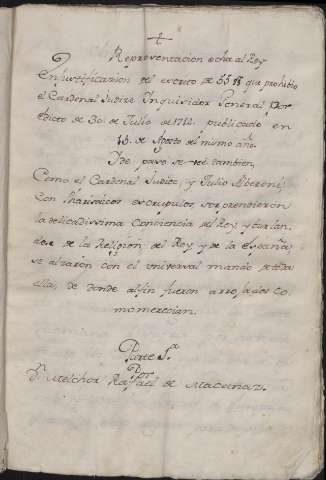 Representacion echa al Rey
En justificacion del escrito de 55 §§ que prohibio
el Cardenal Judize Inquisidor General por
Edicto de 30. de Julio de 1714. publicado en
15. de Agosto del mismo año.
I de paso se vee tambien,
Como el Cardenal Judize, y Julio Alberoni,
con Pharisaicos escrupulos sorprendieron
la delicadissima Conciencia del Rey, y burlan
dose de la Religion, del Rey, y de la España,
se alzaron con el universal mando de toda
ella, de donde alfin fueron arrojados co
mo merecian.
Parte 1ª
Por
D. Melchor Rafael de Macanaz.